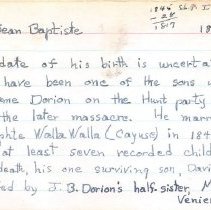 1844 St. P. I
- 28
1817
Jean Baptiste 18
date of his birth is uncerta
have been one of the sons
me Dorion on the Hunt party
the later massacre. He marr
hte Walla Walla (Cayuse) in 184
at least seven recorded child
death, his one surviving son, Davi
ed by J. B. Dorion's half-sister, M
Venie